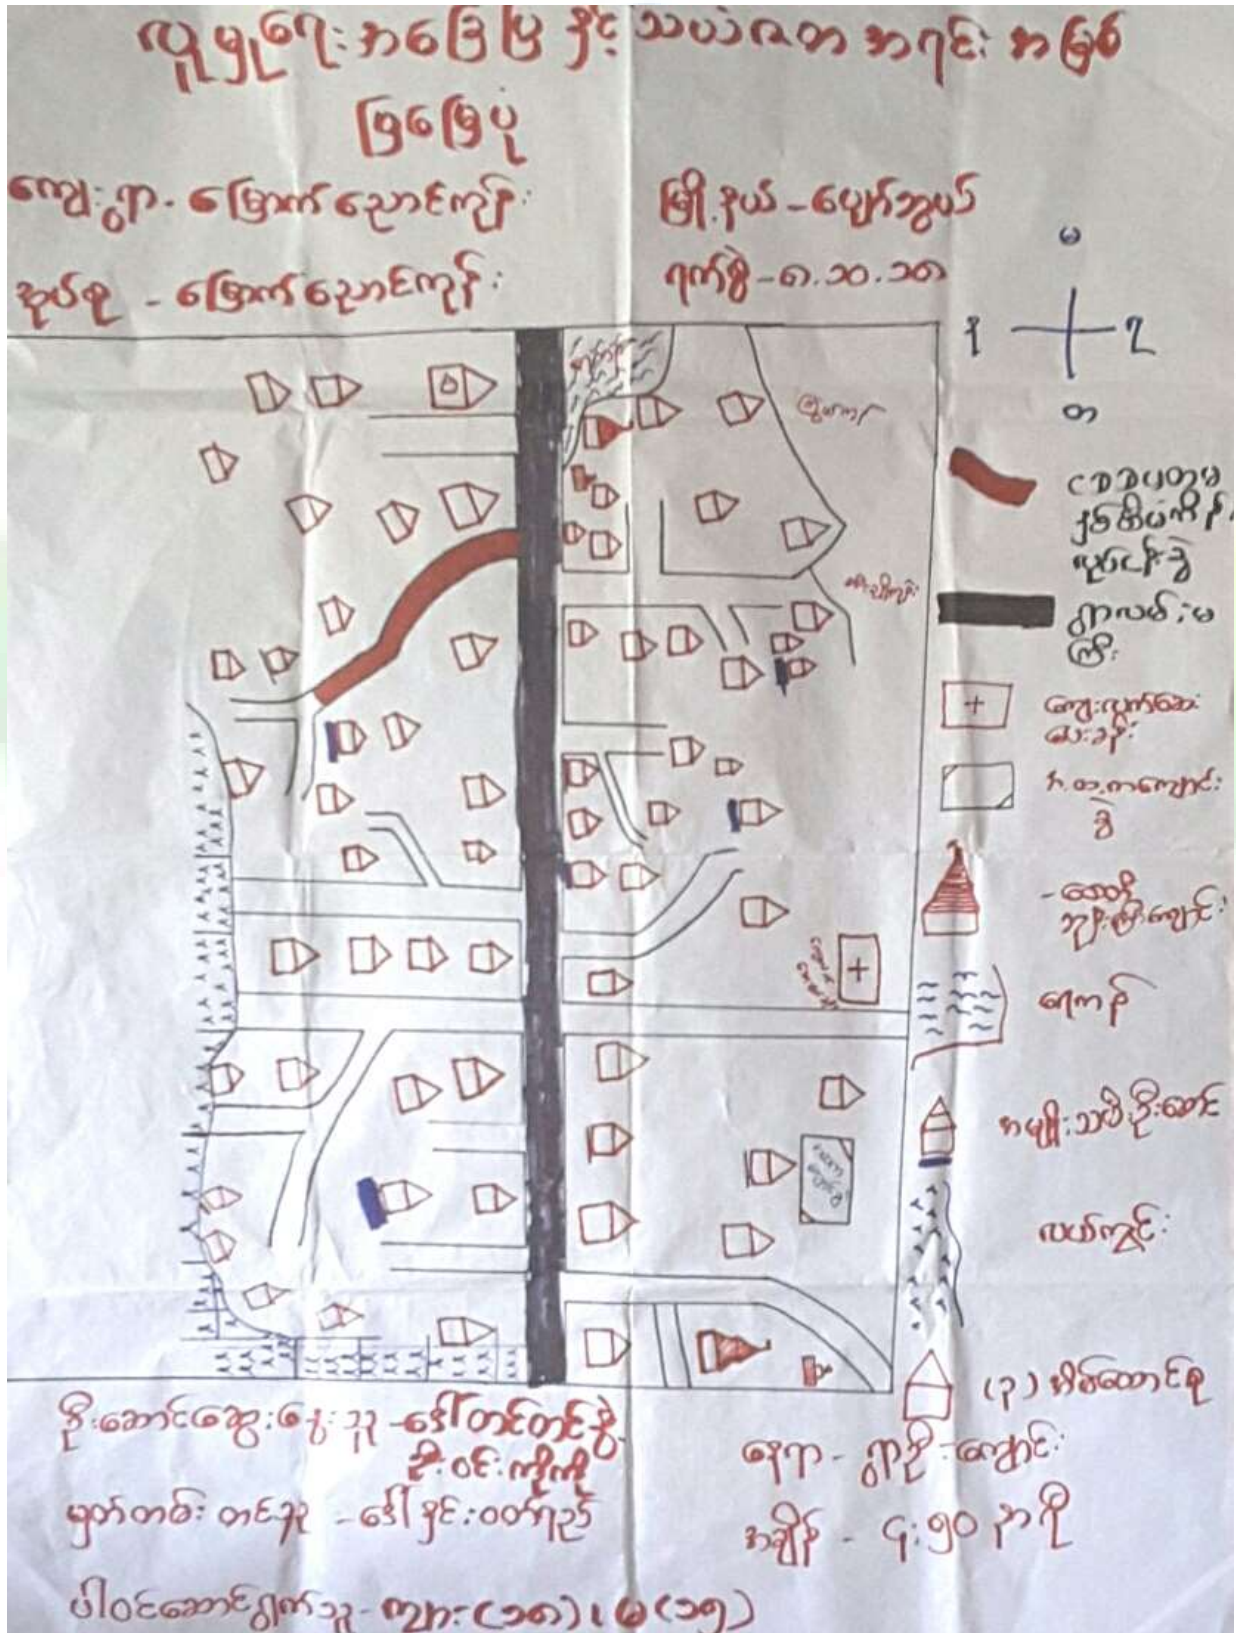 လူမှုရေးအခြေပြ နှင့် သယံဇာတ အရင်းအမြစ်
ပြမြေပုံ
ကျေးရွာ - မြောက်ညောင်ကုန်း
မြို့နယ် - ပျော်ဘွယ်
အုပ်စု - မြောက်ညောင်ကုန်း
ရက်စွဲ - ၈.၁၀.၁၈
မ
န
ရ
တ
နှစ်စီမံကိန်း
လုပ်ငန်းခွဲ
ရွာလမ်းမ
ကြီး
ကျေးလက်ဆေး
ပေးခန်း
အ.ထ.ကကျောင်း
ခွဲ
ဘုန်းကြီးကျောင်း
ရေကန်
အမျိုးသမီးဦးဆောင်
လယ်ကွင်း
(၃) အိမ်ထောင်စု
ဦးဆောင်ဆွေးနွေးသူ - ဒေါ်တင်တင်နွဲ့
ဦးဝင်းကိုကို
မှတ်တမ်းတင်သူ - ဒေါ်နှင်းဝတ်ရည်
ပါဝင်ဆောင်ရွက်သူ - ကျား (၁၈) ၊ မ (၁၅)
နေရာ - ရွာဦးကျောင်း
အချိန် - ၄:၅၀ နာရီ